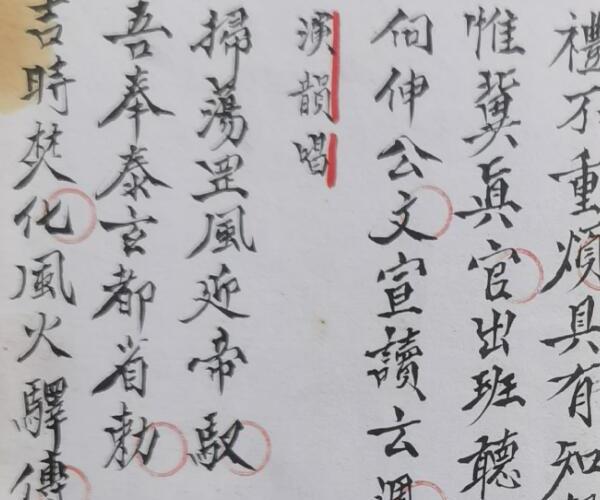 禮不重煩具有知
惟冀真官出班聽
向伸公文宣讀云
演韻唱
掃蕩罡風近帝馭
吾奉泰玄都省勅
吉時焚化風火驛傳